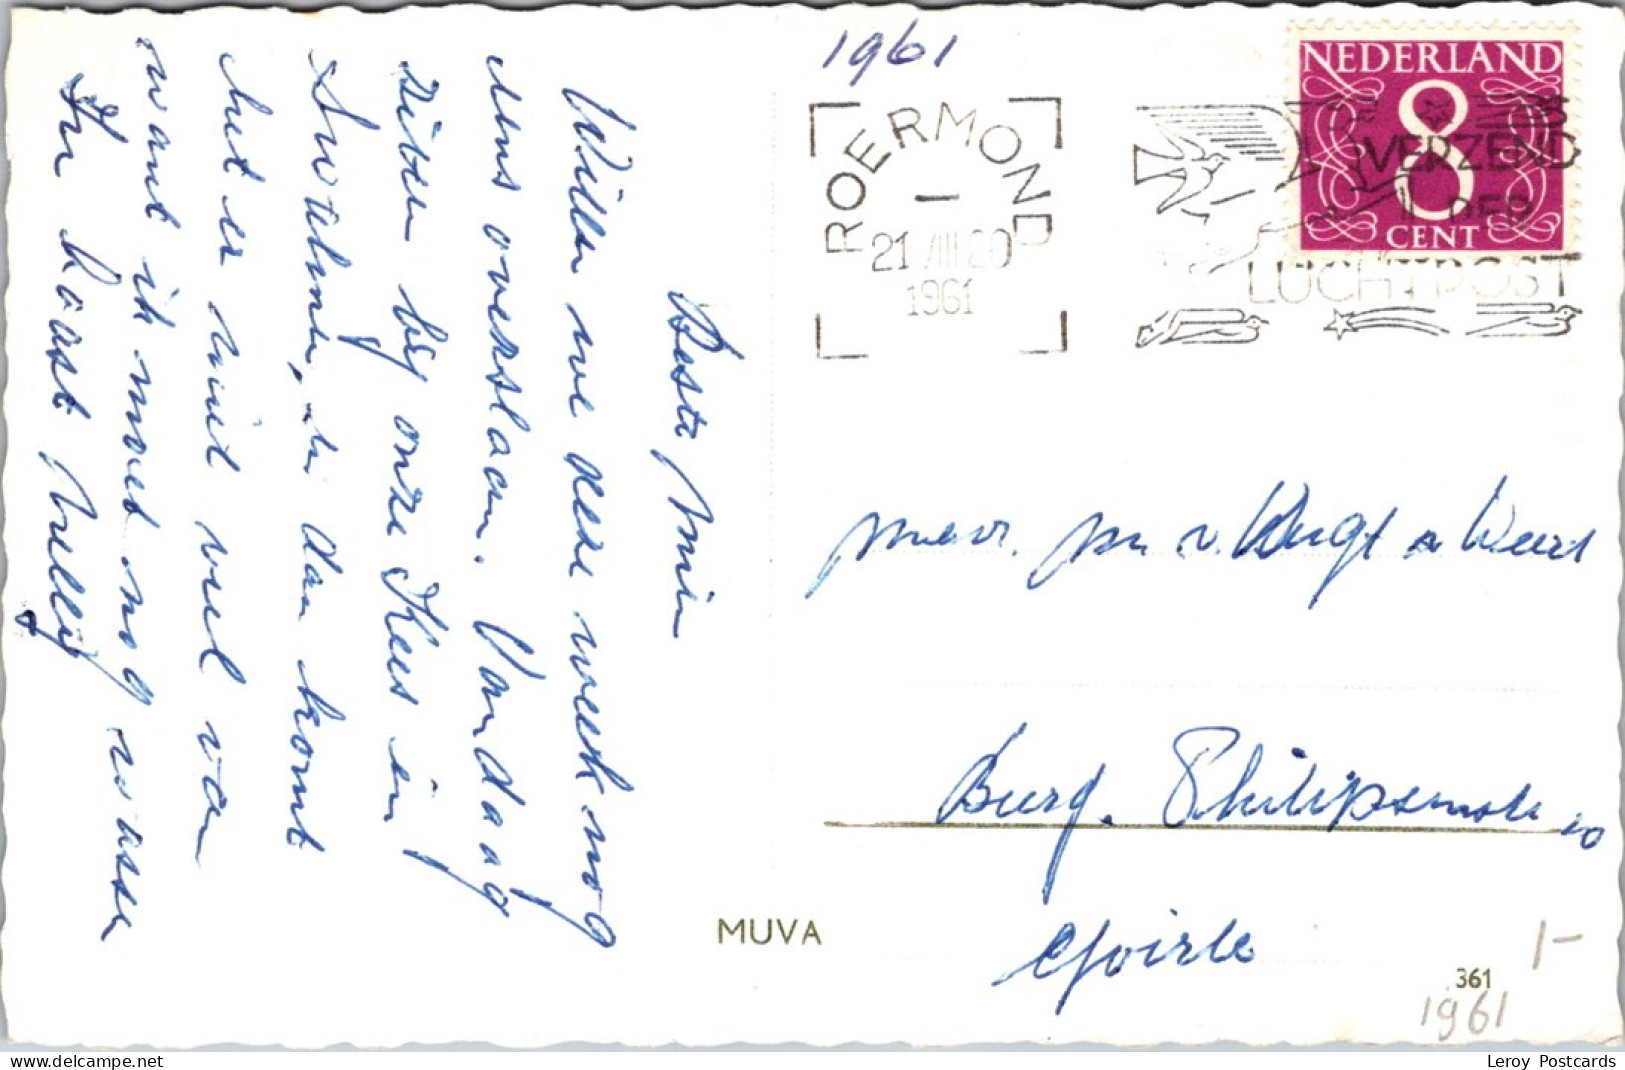 1961
NEDERLAND
8
CENT
ROERMOND
1
21 VIII 20
1961
VERZEND
PER
LUCHTPOST
Beste Mien
Willen we deze week nog
eens overslaan. Vandaag
zitten bij onze Kees in
Swalmen, en dan komt
het er niet veel van
want ik moet nog wassen
Nelly
mevr. v. Weert
Burg. Philipsenstr 10
Goirle
MUVA
361
1-
1961
Leroy Postcards